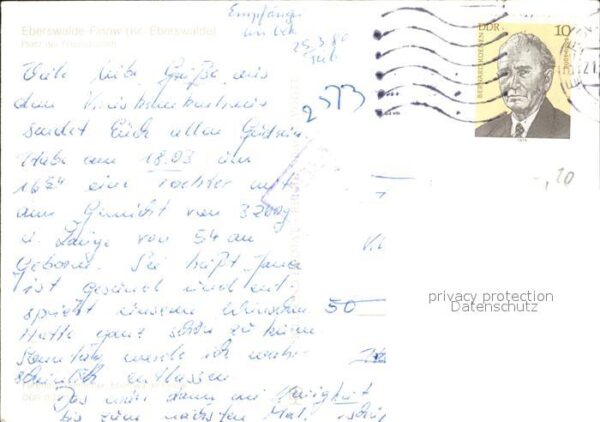 Eberswalde-Finow (Kr. Eberswalde)
Platz der Freundschaft
Empfänger
unbek
25.3.80
DDR
10
BERNARD KOENEN
Viele liebe Grüße aus
dem Krankenhaus
sendet Euch allen Gudrun
Habe am 18.03 um
16 eine Tochter mit
dem Gewicht von 3200g
u. Länge von 54 cm
geboren. Sie heißt Jana
ist gesund und ent-
spricht unseren Wünschen
Hatte ganz schön zu tun
Sonntag werde ich wahr-
scheinlich entlassen
Das wär dann die Neuigkeit
bis zum nächsten Mal.
2573
50
-,20
privacy protection
Datenschutz